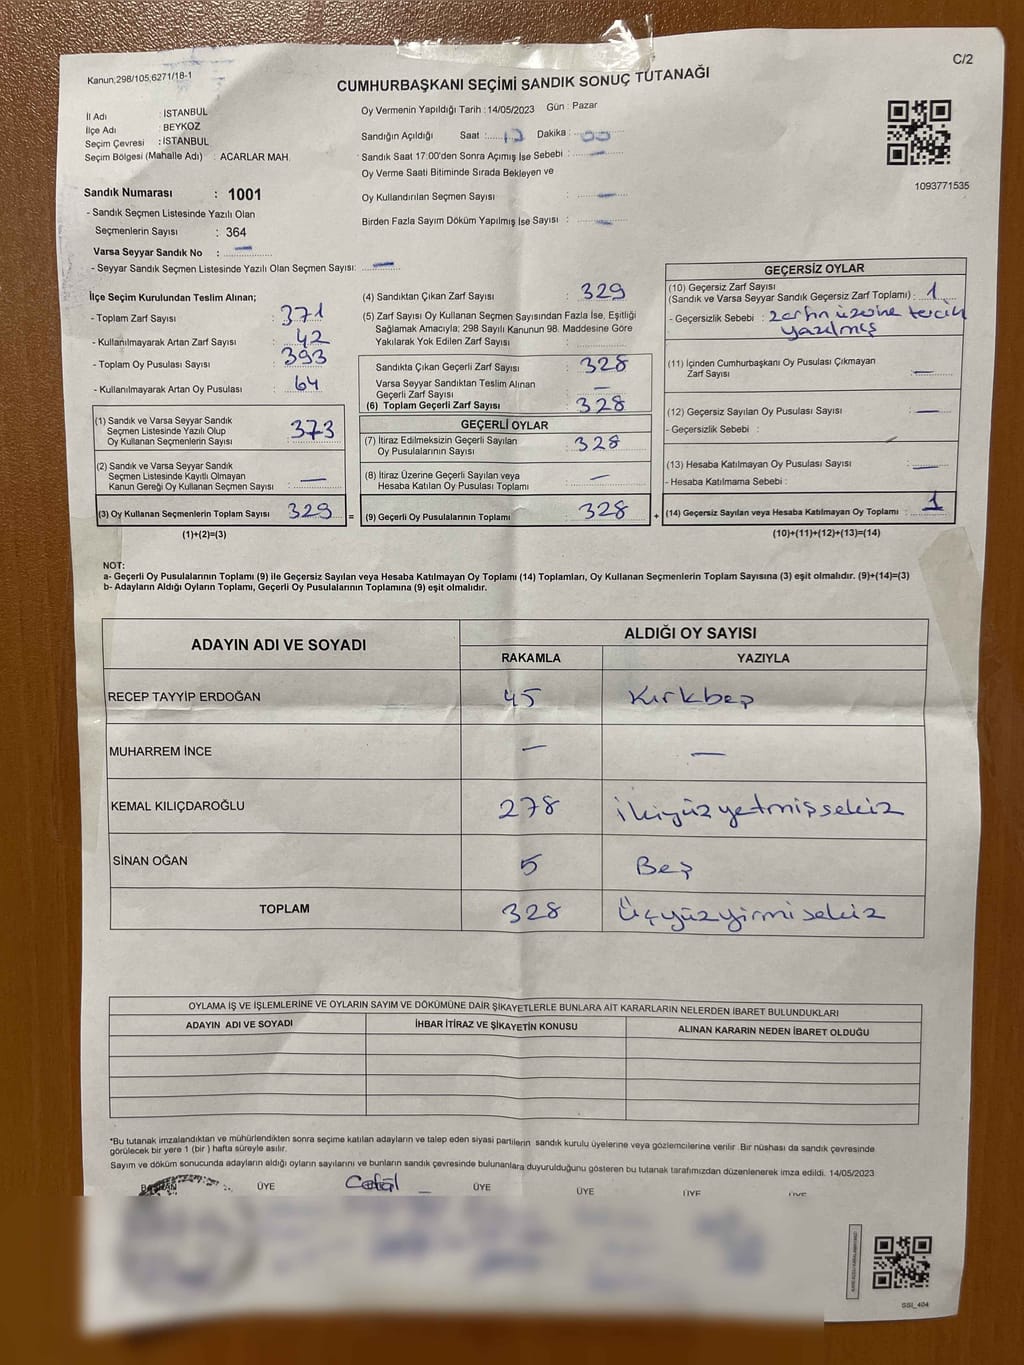 Kanun;298/105,6271/18-1
C/2
CUMHURBAŞKANI SEÇİMİ SANDIK SONUÇ TUTANAĞI
İl Adı : İSTANBUL
İlçe Adı : BEYKOZ
Seçim Çevresi : İSTANBUL
Seçim Bölgesi (Mahalle Adı) : ACARLAR MAH.
Sandık Numarası : 1001
- Sandık Seçmen Listesinde Yazılı Olan
Seçmenlerin Sayısı : 364
Varsa Seyyar Sandık No : —
- Seyyar Sandık Seçmen Listesinde Yazılı Olan Seçmen Sayısı: —
Oy Vermenin Yapıldığı Tarih : 14/05/2023 Gün : Pazar
Sandığın Açıldığı Saat : Dakika : 00
Sandık Saat 17:00'den Sonra Açımış İse Sebebi : —
Oy Verme Saati Bitiminde Sırada Bekleyen ve
Oy Kullandırılan Seçmen Sayısı : —
Birden Fazla Sayım Döküm Yapılmış İse Sayısı : —
1093771535
İlçe Seçim Kurulundan Teslim Alınan;
- Toplam Zarf Sayısı : 371
- Kullanılmayarak Artan Zarf Sayısı : 42
- Toplam Oy Pusulası Sayısı : 393
- Kullanılmayarak Artan Oy Pusulası : 64
(1) Sandık ve Varsa Seyyar Sandık
Seçmen Listesinde Yazılı Olup
Oy Kullanan Seçmenlerin Sayısı : 373
(2) Sandık ve Varsa Seyyar Sandık
Seçmen Listesinde Kayıtlı Olmayan
Kanun Gereği Oy Kullanan Seçmen Sayısı : —
(3) Oy Kullanan Seçmenlerin Toplam Sayısı : 329 =
(1)+(2)=(3)
(4) Sandıktan Çıkan Zarf Sayısı : 329
(5) Zarf Sayısı Oy Kullanan Seçmen Sayısından Fazla İse, Eşitliği
Sağlamak Amacıyla; 298 Sayılı Kanunun 98. Maddesine Göre
Yakılarak Yok Edilen Zarf Sayısı :
Sandıkta Çıkan Geçerli Zarf Sayısı : 328
Varsa Seyyar Sandıktan Teslim Alınan
Geçerli Zarf Sayısı : —
(6) Toplam Geçerli Zarf Sayısı : 328
GEÇERLİ OYLAR
(7) İtiraz Edilmeksizin Geçerli Sayılan
Oy Pusulalarının Sayısı : 328
(8) İtiraz Üzerine Geçerli Sayılan veya
Hesaba Katılan Oy Pusulası Toplamı : —
(9) Geçerli Oy Pusulalarının Toplamı : 328 +
GEÇERSİZ OYLAR
(10) Geçersiz Zarf Sayısı
(Sandık ve Varsa Seyyar Sandık Geçersiz Zarf Toplamı) : 1
- Geçersizlik Sebebi : zarfın üzerine tercih
yazılmış
(11) İçinden Cumhurbaşkanı Oy Pusulası Çıkmayan
Zarf Sayısı : —
(12) Geçersiz Sayılan Oy Pusulası Sayısı : —
- Geçersizlik Sebebi :
(13) Hesaba Katılmayan Oy Pusulası Sayısı : —
- Hesaba Katılmama Sebebi :
(14) Geçersiz Sayılan veya Hesaba Katılmayan Oy Toplamı : 1
(10)+(11)+(12)+(13)=(14)
NOT:
a- Geçerli Oy Pusulalarının Toplamı (9) ile Geçersiz Sayılan veya Hesaba Katılmayan Oy Toplamı (14) Toplamları, Oy Kullanan Seçmenlerin Toplam Sayısına (3) eşit olmalıdır. (9)+(14)=(3)
b- Adayların Aldığı Oyların Toplamı, Geçerli Oy Pusulalarının Toplamına (9) eşit olmalıdır.
ADAYIN ADI VE SOYADI
ALDIĞI OY SAYISI
RAKAMLA YAZIYLA
RECEP TAYYİP ERDOĞAN 45 Kırkbeş
MUHARREM İNCE — —
KEMAL KILIÇDAROĞLU 278 İkiyüzyetmişsekiz
SİNAN OĞAN 5 Beş
TOPLAM 328 Üçyüzyirmisekiz
OYLAMA İŞ VE İŞLEMLERİNE VE OYLARIN SAYIM VE DÖKÜMÜNE DAİR ŞİKAYETLERLE BUNLARA AİT KARARLARIN NELERDEN İBARET BULUNDUKLARI
ADAYIN ADI VE SOYADI İHBAR İTİRAZ VE ŞİKAYETİN KONUSU ALINAN KARARIN NEDEN İBARET OLDUĞU
*Bu tutanak imzalandıktan ve mühürlendikten sonra seçime katılan adayların ve talep eden siyasi partilerin sandık kurulu üyelerine veya gözlemcilerine verilir. Bir nüshası da sandık çevresinde
görülecek bir yere 1 (bir ) hafta süreyle asılır.
Sayım ve döküm sonucunda adayların aldığı oyların sayılarını ve bunların sandık çevresinde bulunanlara duyurulduğunu gösteren bu tutanak tarafımızdan düzenlenerek imza edildi. 14/05/2023
BAŞKAN ÜYE ÜYE ÜYE ÜYE ÜYE
SSI_404